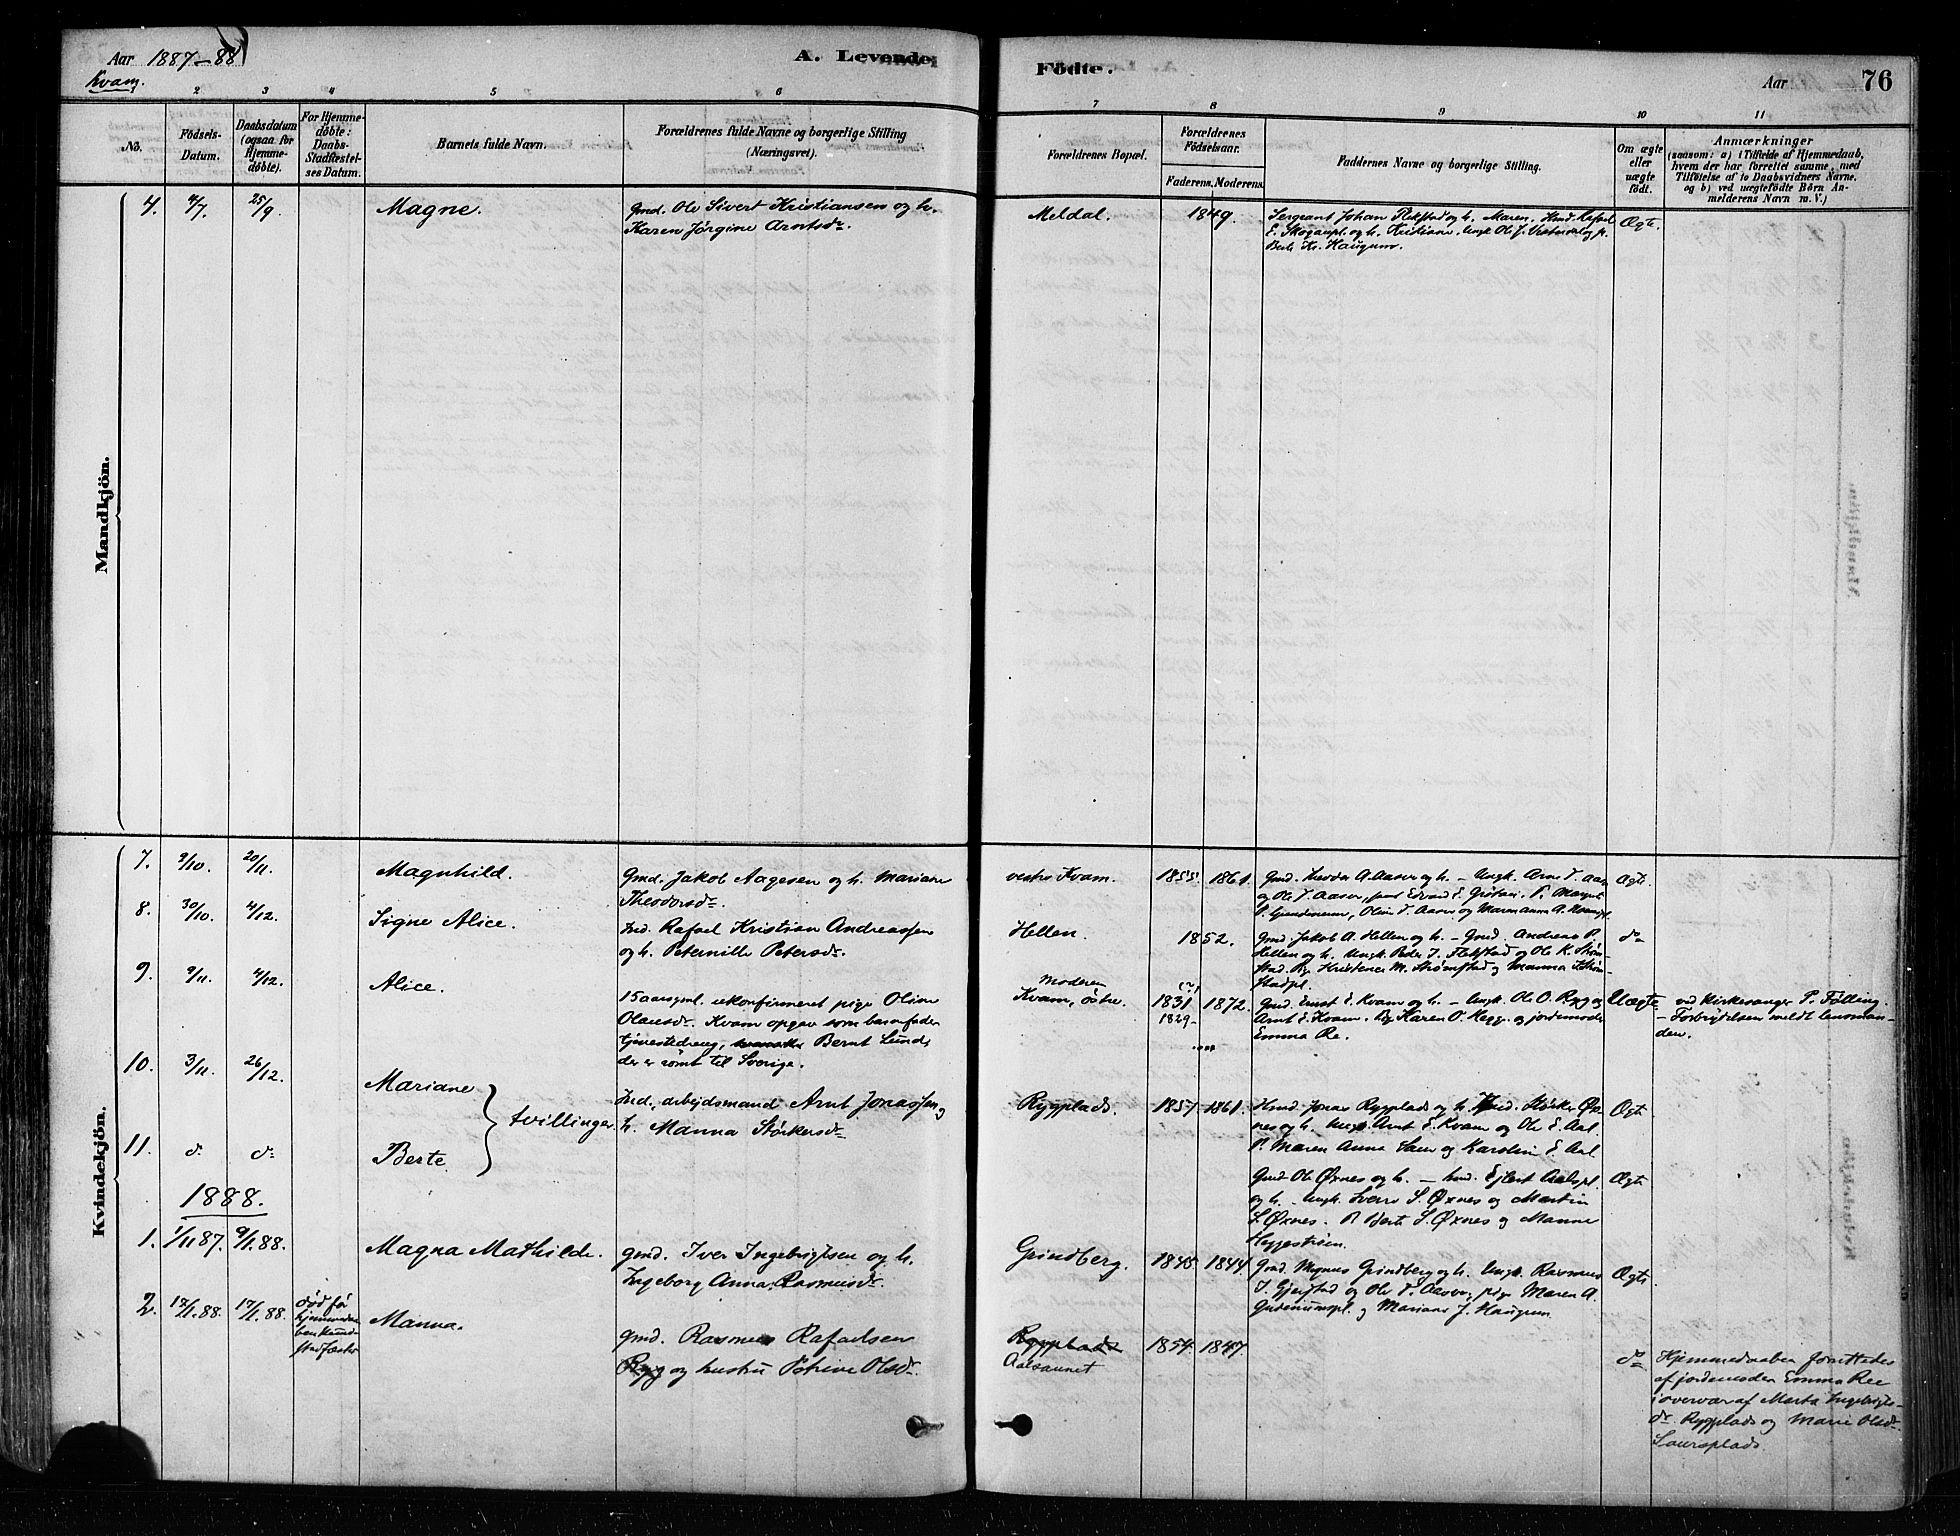 Aar 1887-88
A. Levende
Födte.
Aar
76
Kvam.
2 3 4 5 6 7 8 9 10 11
No.
Födsels-
Datum.
Daabsdatum
(ogsaa for
Hjemme-
döbte).
For Hjemme-
döbte:
Daabs-
Stadfæstel-
ses Datum.
Barnets fulde Navn.
Forældrenes fulde Navne og borgerlige Stilling
(Næringsvei).
Forældrenes Bopæl.
Forældrenes
Födselsaar.
Faderens. Moderens.
Faddernes Navne og borgerlige Stilling.
Om ægte
eller
uægte
födt.
Anmærkninger
(saasom: a) i Tilfælde af Hjemmedaab,
hvem der har forrettet samme, med
Tilföielse af to Daabsvidners Navne,
og b) ved uægtefödte Börn An-
melderens Navn m. V.)
Mandkjön.
4. 4/7. 25/9. Magne.
Gmd. Ole Sivert Kristiansen og h.
Karen Jörgine Arntsdr.
Meldal. 1849.
Sergeant Johan Flekstad og h. Maren.
og h. Kristiane. Ungk. Ole J.
Haugum.
Ægte.
Kvindekjön.
7. 9/10. 20/11. Magnhild.
Gmd. Jakob Aagesen og h. Mariane
Theodorsdr.
vestre Kvam. 1855. 1861.
Gmd. Theodor A. Aasvr og h. - Ungk. Arne T. Aasv
og Ole T. Aasvr,
Olin T. Aasvr og Marianna A.
Ægt.
8. 30/10. 4/12. Signe Alice.
Ind. Rafael Kristian Andreassen
og h. Peternille Petersdr.
Hellen. 1852.
Gmd. Jakob A. Hellen og h. - Gmd. Andreas P.
Hellen og h. Ungk. Peder J. Flekstad og Ole K. Strøm-
stad. Pg. Kristence M. Strømstad og Manna
stadpl.
do
9. 9/11. 4/12. Alice.
15 aarsgml. ukonfirmeret pige Oline
Olausdr. Kvam opgav som barnefader
tjenestedreng, Bernt Lund,
der er rømt til Sverige.
Moderen
Kvam, östre. 1831 1872.
1829-
Gmd. Ernst E. Kvam og h. - Ungk. Ole O. Ryg og
Arnt E. Kvam. Pg. Karen O. Rygg og jordemoder
Emma Re.
Uægte
ved Kirkesanger P. Følling.
- Forbrydelsen meldt lensman-
den.
10. 3/11. 26/12. Mariane
tvillinger.
Ind., arbejdsmand Arnt Jonassen og
h. Manna Störkersdr
Rygplads. 1857. 1861.
Hmd. Jonas Rygplads og h. Gmd. Störker Øx-
nes og h. Ungk. Arnt E. Kvam og Ole E. Aal
P. Maren Anna Saur og Karolin E. Aal
Ægt.
11. d. dr Berte.
Gmd Ole Øxnes og h. - hmd. Ejlert Aalspl.
og h. - Ungk. Sverr S. Øxnes og Martin
S. Øxnes. P. Berte S. Øxnes og Manne
Heggestrøen.
Ægt.
1888.
1. 1/11 87. 9/1. 88. Magna Mathilde.
gmd. Iver Ingebrigtsen og h.
Ingeborg Anna Rasmusdr.
Grindberg. 1845. 1844.
Gmd. Magnus Grindberg og h. Ungk. Rasmus
I. Gjerstad og Ole T. Aasvr, pige Maren A.
og Mariane J. Haugum.
Ægte
2. 17/1. 88. 17/1. 88.
død før
hjemmedaa-
ben kunde
stadfæstes
Manna.
gmd. Rasmus Rafaelsen
Ryg og hustru Petrine Olsdr.
Rygplads
Aalsaunet
1854. 1847.
do
Hjemmedaaben forrettedes
af jordemoder Emma Ree
i overvær af Marta Ingebrigts-
dr. Rygplads og Marie Olsdr
Saursplads.